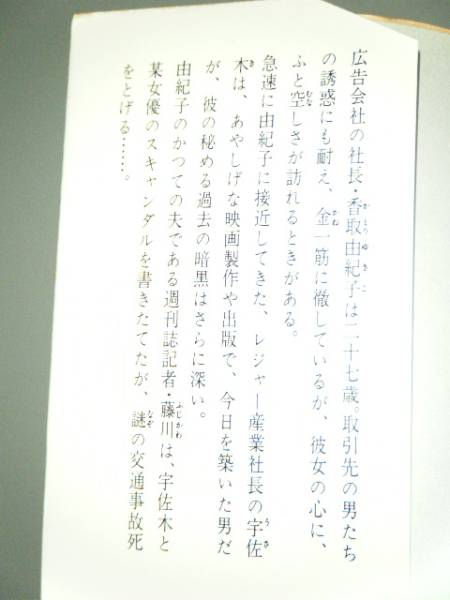 広告会社の社長・香取由紀子は二十七歳。取引先の男たち
の誘惑にも耐え、金一筋に徹しているが、彼女の心に、
ふと空しさが訪れるときがある。
急速に由紀子に接近してきた、レジャー産業社長の宇佐
木は、あやしげな映画製作や出版で、今日を築いた男だ
が、彼の秘める過去の暗黒はさらに深い。
由紀子のかつての夫である週刊誌記者・藤川は、宇佐木と
某女優のスキャンダルを書きたてたが、謎の交通事故死
をとげる……。